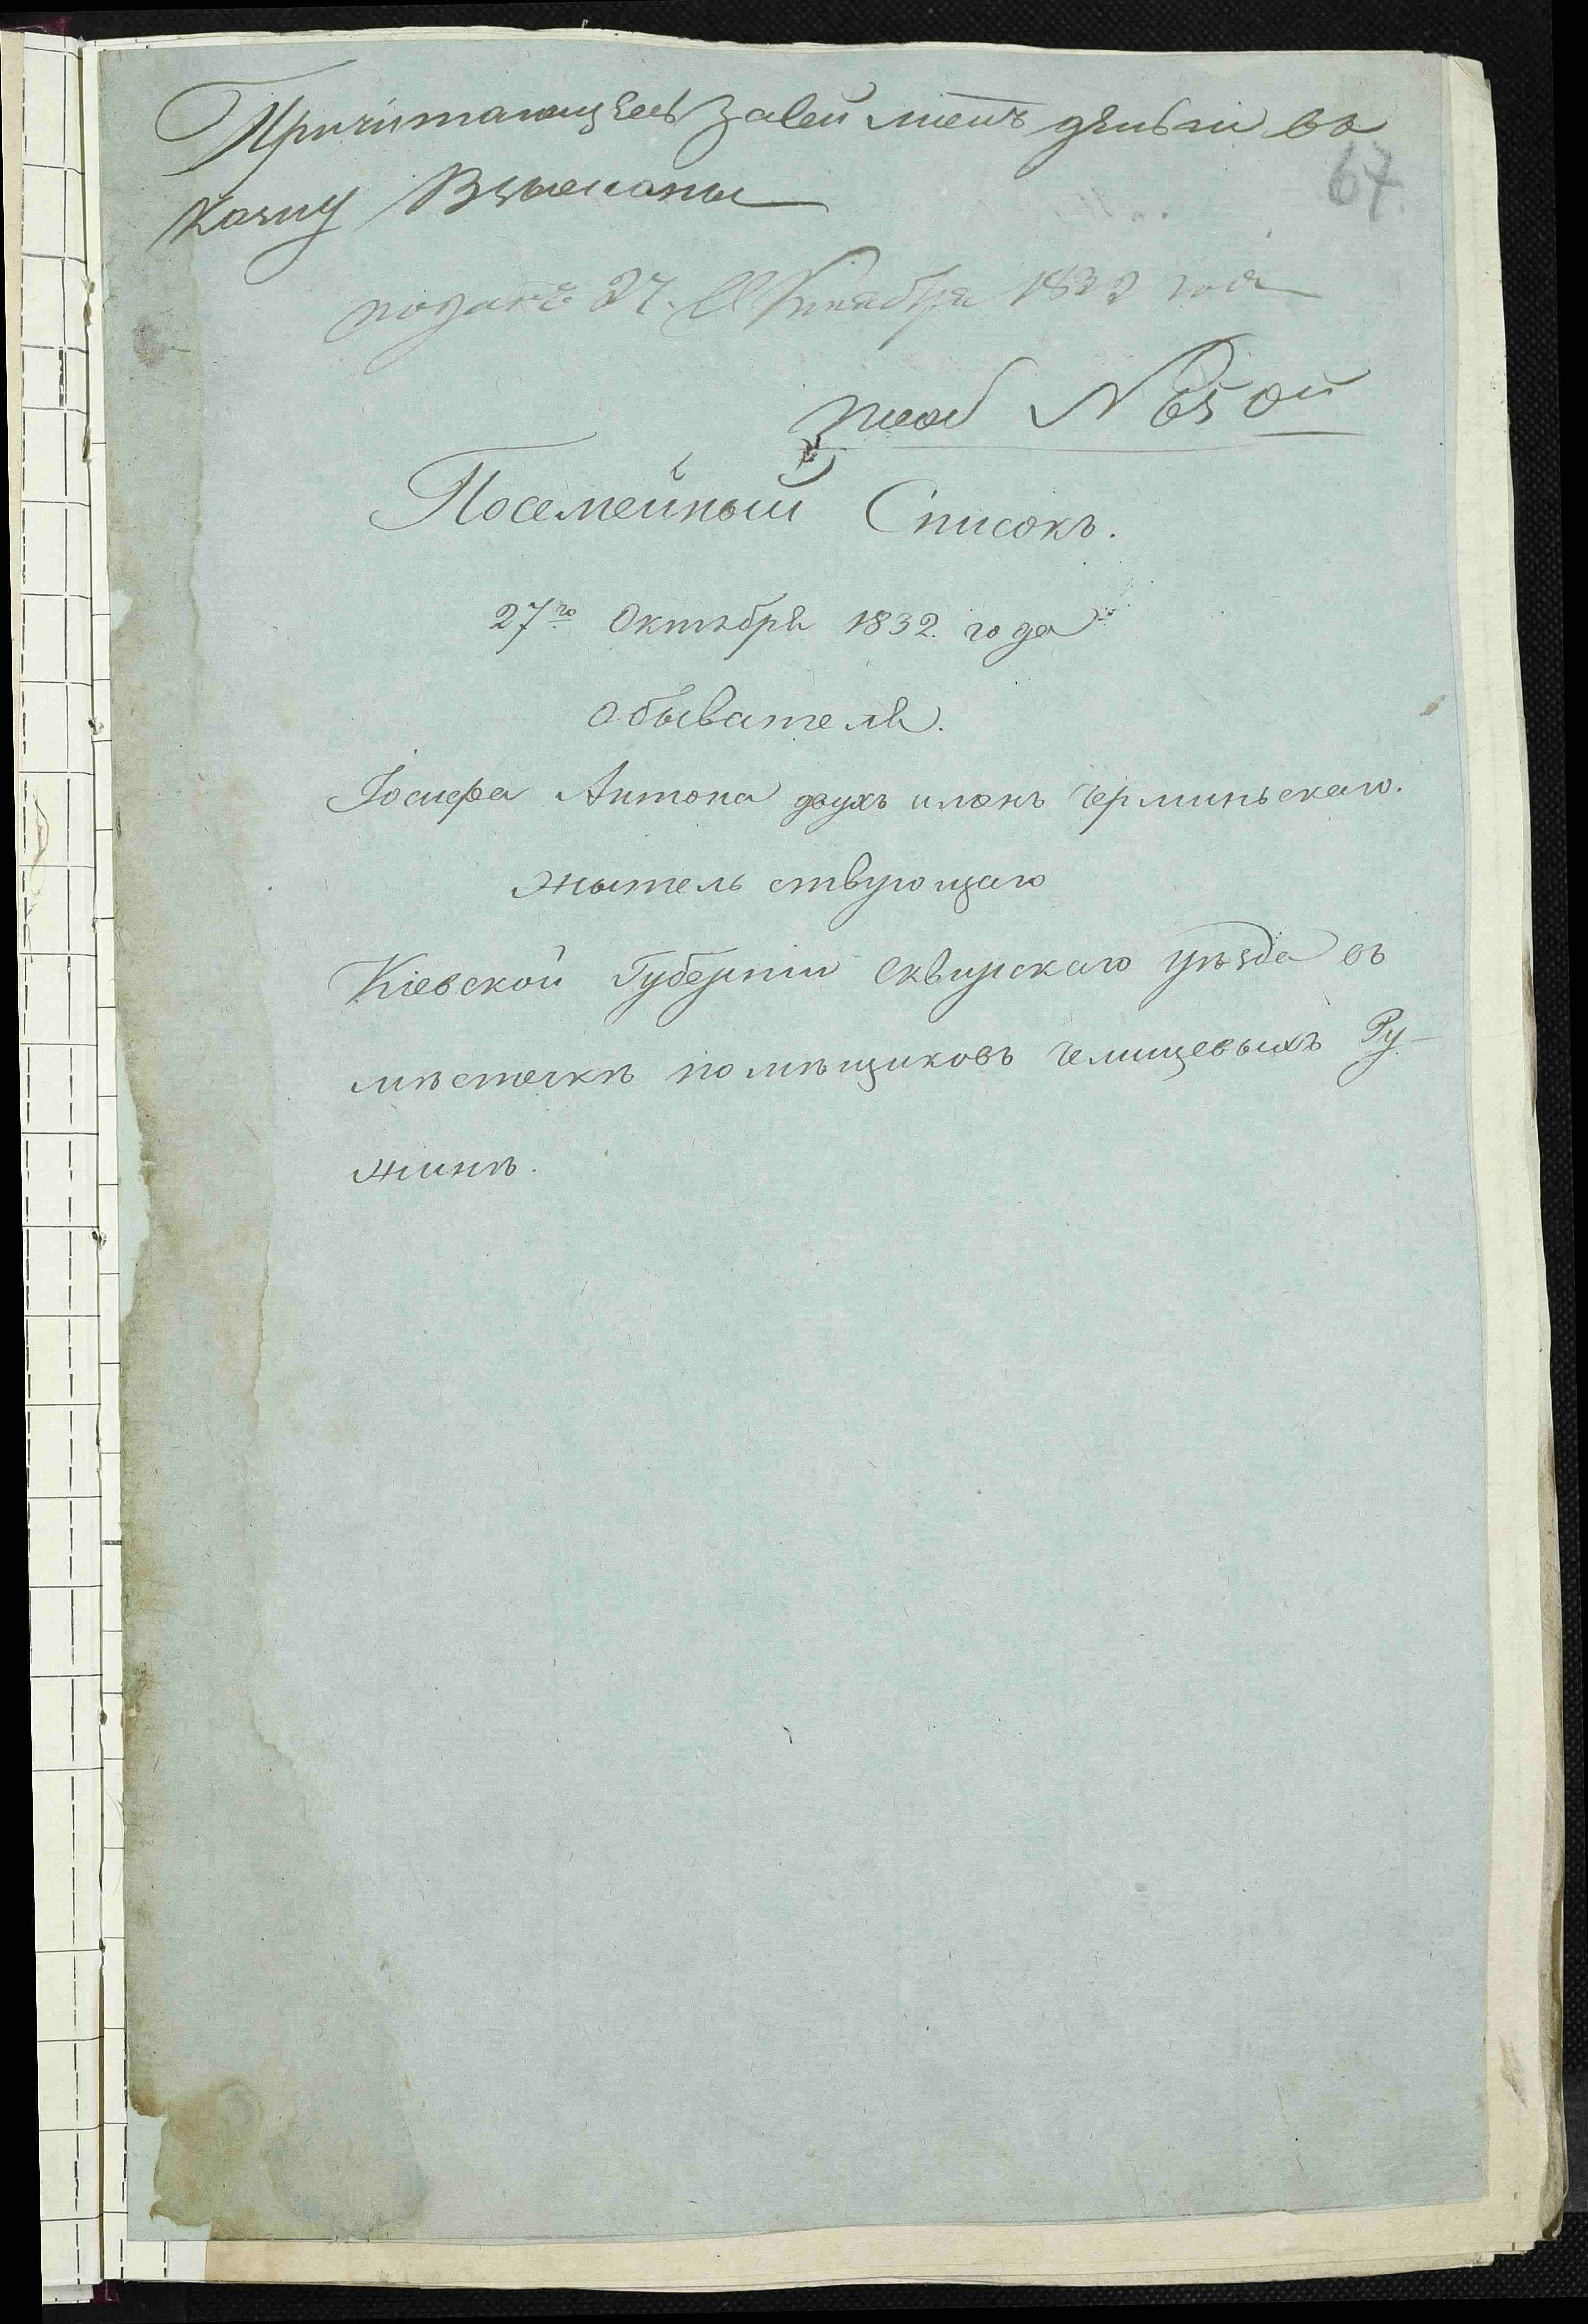 Причитающіесь за сей листъ деньги въ
казну Взысканы
67
поданъ 27. Октября 1832 года
№ 65 ой
Посемейный Списокъ.
27го Октября 1832. года
обывателя.
Іосифа Антона двухъ имянъ Черминьскаго.
жытельствующаго
Кіевской Губерніи Сквирскаго уѣзда въ
мѣстечкѣ помѣщиковъ Челищевыхъ Ру-
жинѣ.